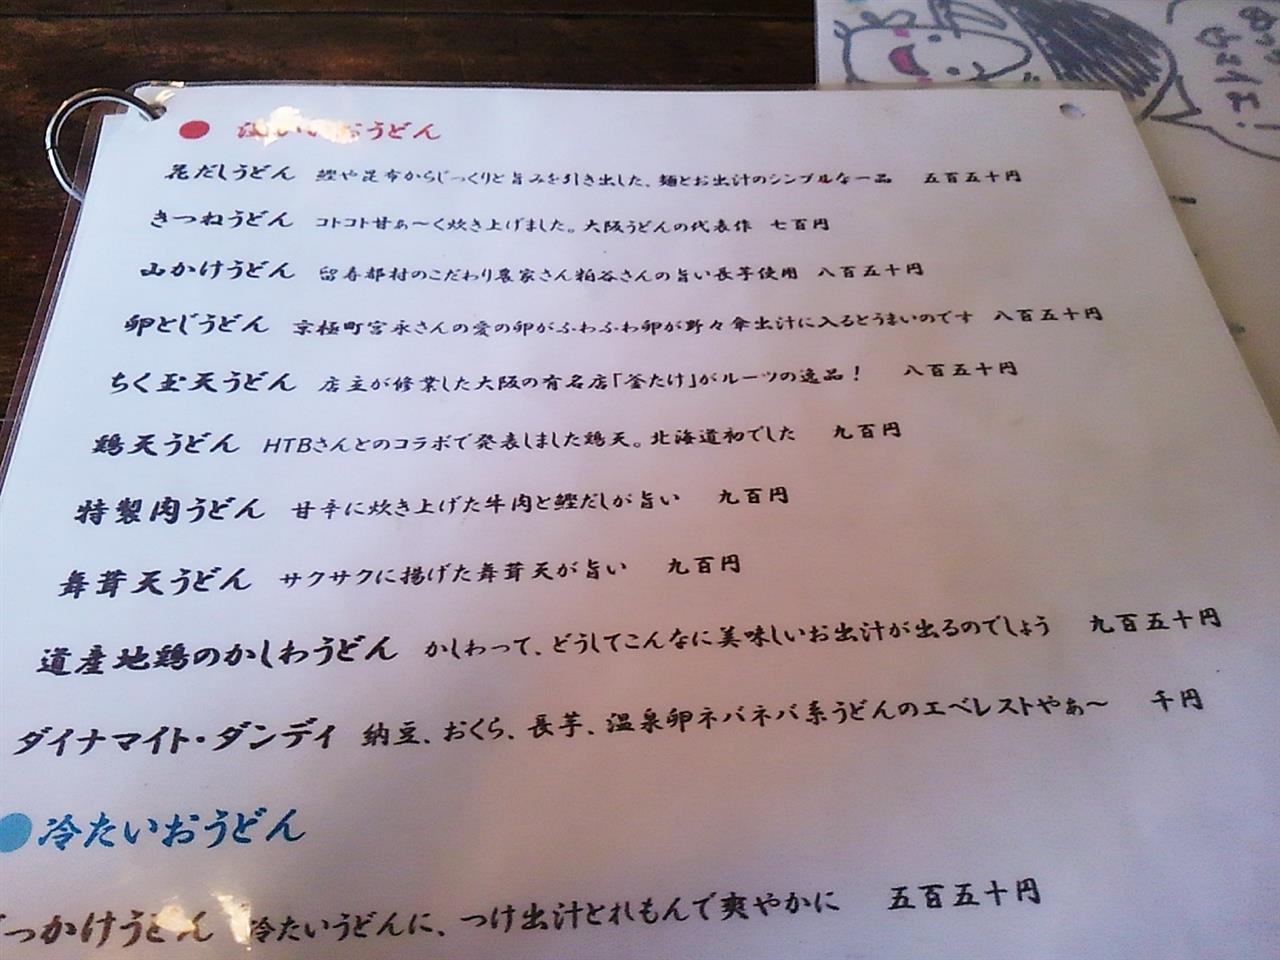 ● 温かいおうどん
花だしうどん 鰹や昆布からじっくりと旨みを引き出した、麺とお出汁のシンプルな一品 五百五十円
きつねうどん コトコト甘ぁ〜く炊き上げました。大阪うどんの代表作 七百円
山かけうどん 留寿都村のこだわり農家さん粕谷さんの旨い長芋使用 八百五十円
卵とじうどん 京極町宮永さんの愛の卵がふわふわ卵が野々傘出汁に入るとうまいのです 八百五十円
ちく玉天うどん 店主が修業した大阪の有名店「釜たけ」がルーツの逸品! 八百五十円
鶏天うどん HTBさんとのコラボで発表しました鶏天。北海道初でした 九百円
特製肉うどん 甘辛に炊き上げた牛肉と鰹だしが旨い 九百円
舞茸天うどん サクサクに揚げた舞茸天が旨い 九百円
道産地鶏のかしわうどん かしわって、どうしてこんなに美味しいお出汁が出るのでしょう 九百五十円
ダイナマイト・ダンディ 納豆、おくら、長芋、温泉卵ネバネバ系うどんのエベレストやぁ〜 千円
●冷たいおうどん
ぶっかけうどん 冷たいうどんに、つけ出汁とれもんで爽やかに 五百五十円